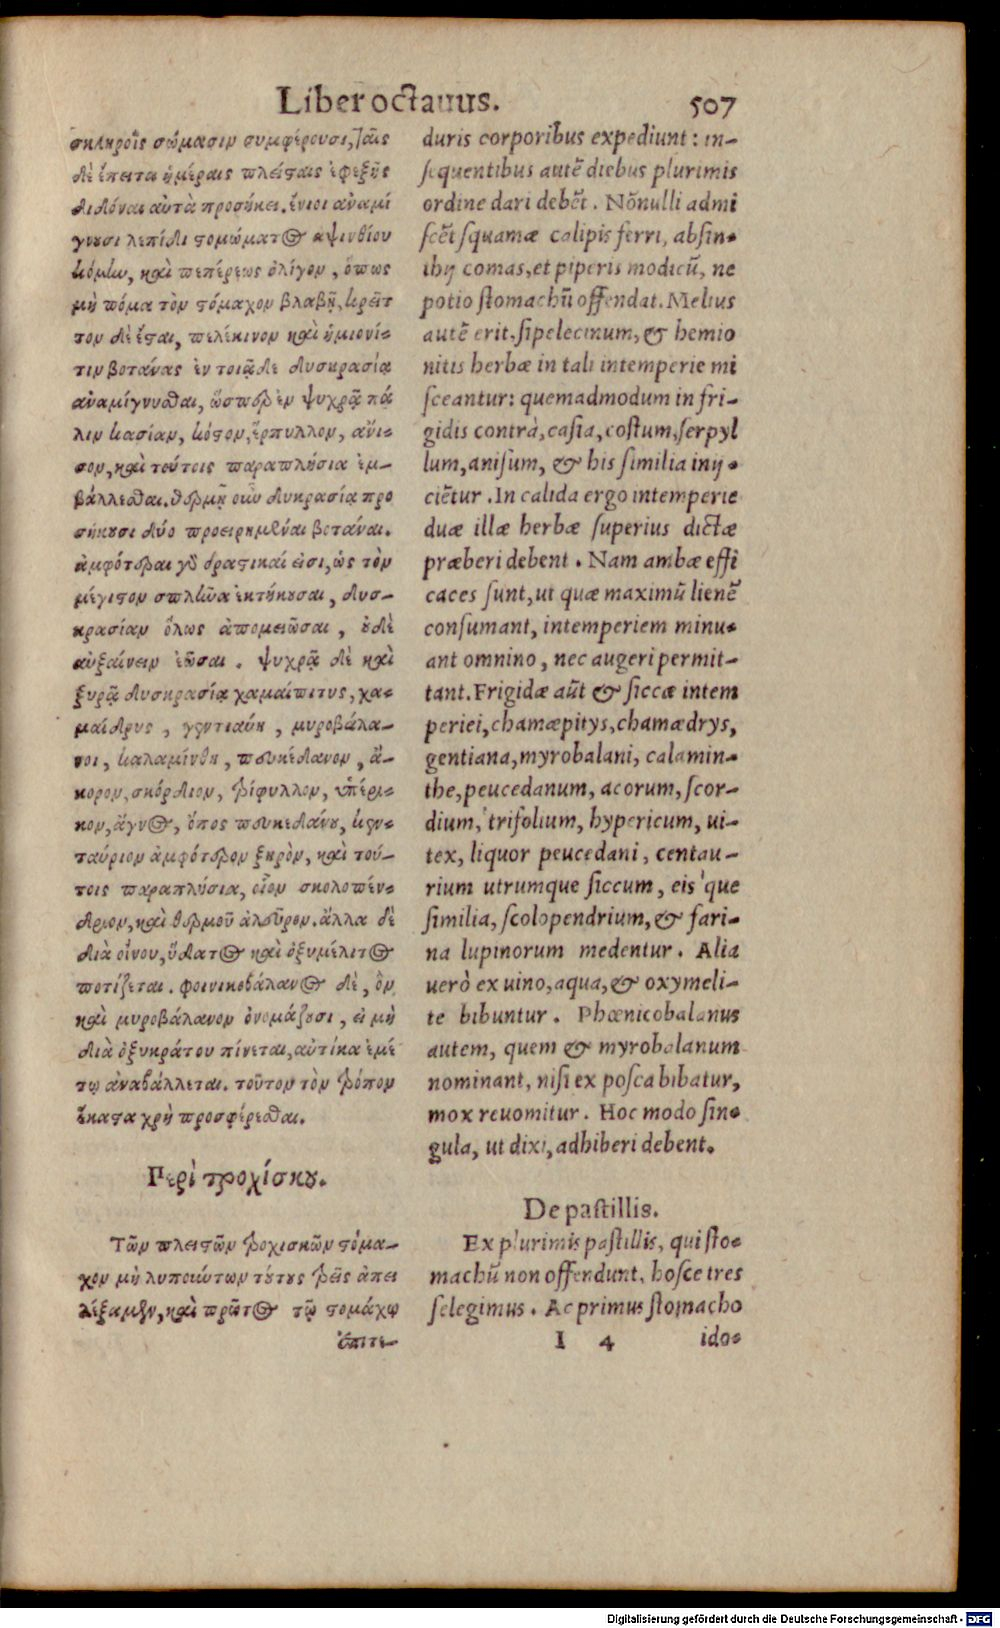 Liber octauus. 507
σκληροῖς σώμασιν συμφέρουσι, ταῖς
δὲ ἔπειτα ἡμέραις πλείσταις ἐφεξῆς
διδόναι αὐτὰ προσήκει. ἔνιοι ἀναμί
γνυσι λεπίδι στομώματος ἀψινθίου
κόμην, καὶ πεπέρεως ὀλίγον, ὅπως
μὴ πόμα τὸν στόμαχον βλαβῇ, κρεῖτ
τον δὲ ἔσται, πελέκινον καὶ ἡμιονί-
τιν βοτάνας ἐν τοιᾷδε δυσκρασίᾳ
ἀναμίγνυσθαι, ὥσπερ ἐν ψυχρᾷ πά
λιν κασίαν, κόστον, ἕρπυλλον, ἄνι-
σον, καὶ τούτοις παραπλήσια ἐμ-
βάλλεσθαι. θερμῇ οὖν δυκρασίᾳ προ
σήκουσι δύο προειρημέναι βοτάναι.
ἀμφότεραι γὰρ δραστικαί εἰσι, ὡς τὸν
μέγιστον σπλῆνα ἐκτήκουσαι, δυσ-
κρασίαν ὅλως ἀπομειῶσαι, οὐδὲ
αὐξαίνειν ἐῶσαι. ψυχρᾷ δὲ καὶ
ξυρᾷ δυσκρασίᾳ χαμαίπιτυς, χα-
μαίδρυς, γεντιανὴ, μυροβάλα-
νοι, καλαμίνθη, πευκέδανον, ἄ-
κορον, σκόρδιον, τρίφυλλον, ὑπέρι-
κον, ἄγνος, ὀπος πευκεδάνου, κεν-
ταύριον ἀμφότερον ξηρὸν, καὶ τού-
τοις παραπλήσια, οἷον σκολοπέν-
δριον, καὶ θερμοῦ ἀλεῦρον. ἄλλα δὲ
διὰ οἴνου, ὕδατος καὶ ὀξυμέλιτος
ποτίζεται. φοινικοβάλανος δὲ, ὃν
καὶ μυροβάλανον ὀνομάζουσι, εἰ μὴ
διὰ ὀξυκράτου πίνεται, αὐτίκα ἐμέ
τῳ ἀναβάλλεται. τοῦτον τὸν τρόπον
ἕκαστα χρὴ προσφέρεσθαι.
Περὶ τροχίσκου.
Τῶν πλείστων τροχισκῶν στόμα-
χον μὴ λυποιώτων τούτους τρεῖς ἀπει
λέξαμεν, καὶ πρῶτος τῷ στομάχῳ
ἐπιτε-
duris corporibus expediunt: in-
sequentibus autē diebus plurimis
ordine dari debēt. Nōnulli admi
scēt squamæ calipis ferri, absin-
thij comas, et piperis modicū, ne
potio stomachū offendat. Melius
autē erit, si pelecinum, & hemio
nitis herbæ in tali intemperie mi
sceantur: quemadmodum in fri-
gidis contrà, casia, costum, serpyl
lum, anisum, & his similia inij-
ciētur. In calida ergo intemperie
duæ illæ herbæ superius dictæ
præberi debent. Nam ambæ effi
caces sunt, ut quæ maximū lienē
consumant, intemperiem minu-
ant omnino, nec augeri permit-
tant. Frigidæ aūt & siccæ intem
periei, chamæpitys, chamædrys,
gentiana, myrobalani, calamin-
the, peucedanum, acorum, scor-
dium, trifolium, hypericum, ui-
tex, liquor peucedani, centau-
rium utrumque siccum, eis'que
similia, scolopendrium, & fari-
na lupinorum medentur. Alia
uerò ex uino, aqua, & oxymeli-
te bibuntur. Phœnicobalanus
autem, quem & myrobalanum
nominant, nisi ex posca bibatur,
mox reuomitur. Hoc modo sin-
gula, ut dixi, adhiberi debent.
De pastillis.
Ex plurimis pastillis, qui sto-
machū non offendunt, hosce tres
selegimus. Ac primus stomacho
I 4 ido-
Digitalisierung gefördert durch die Deutsche Forschungsgemeinschaft - DFG